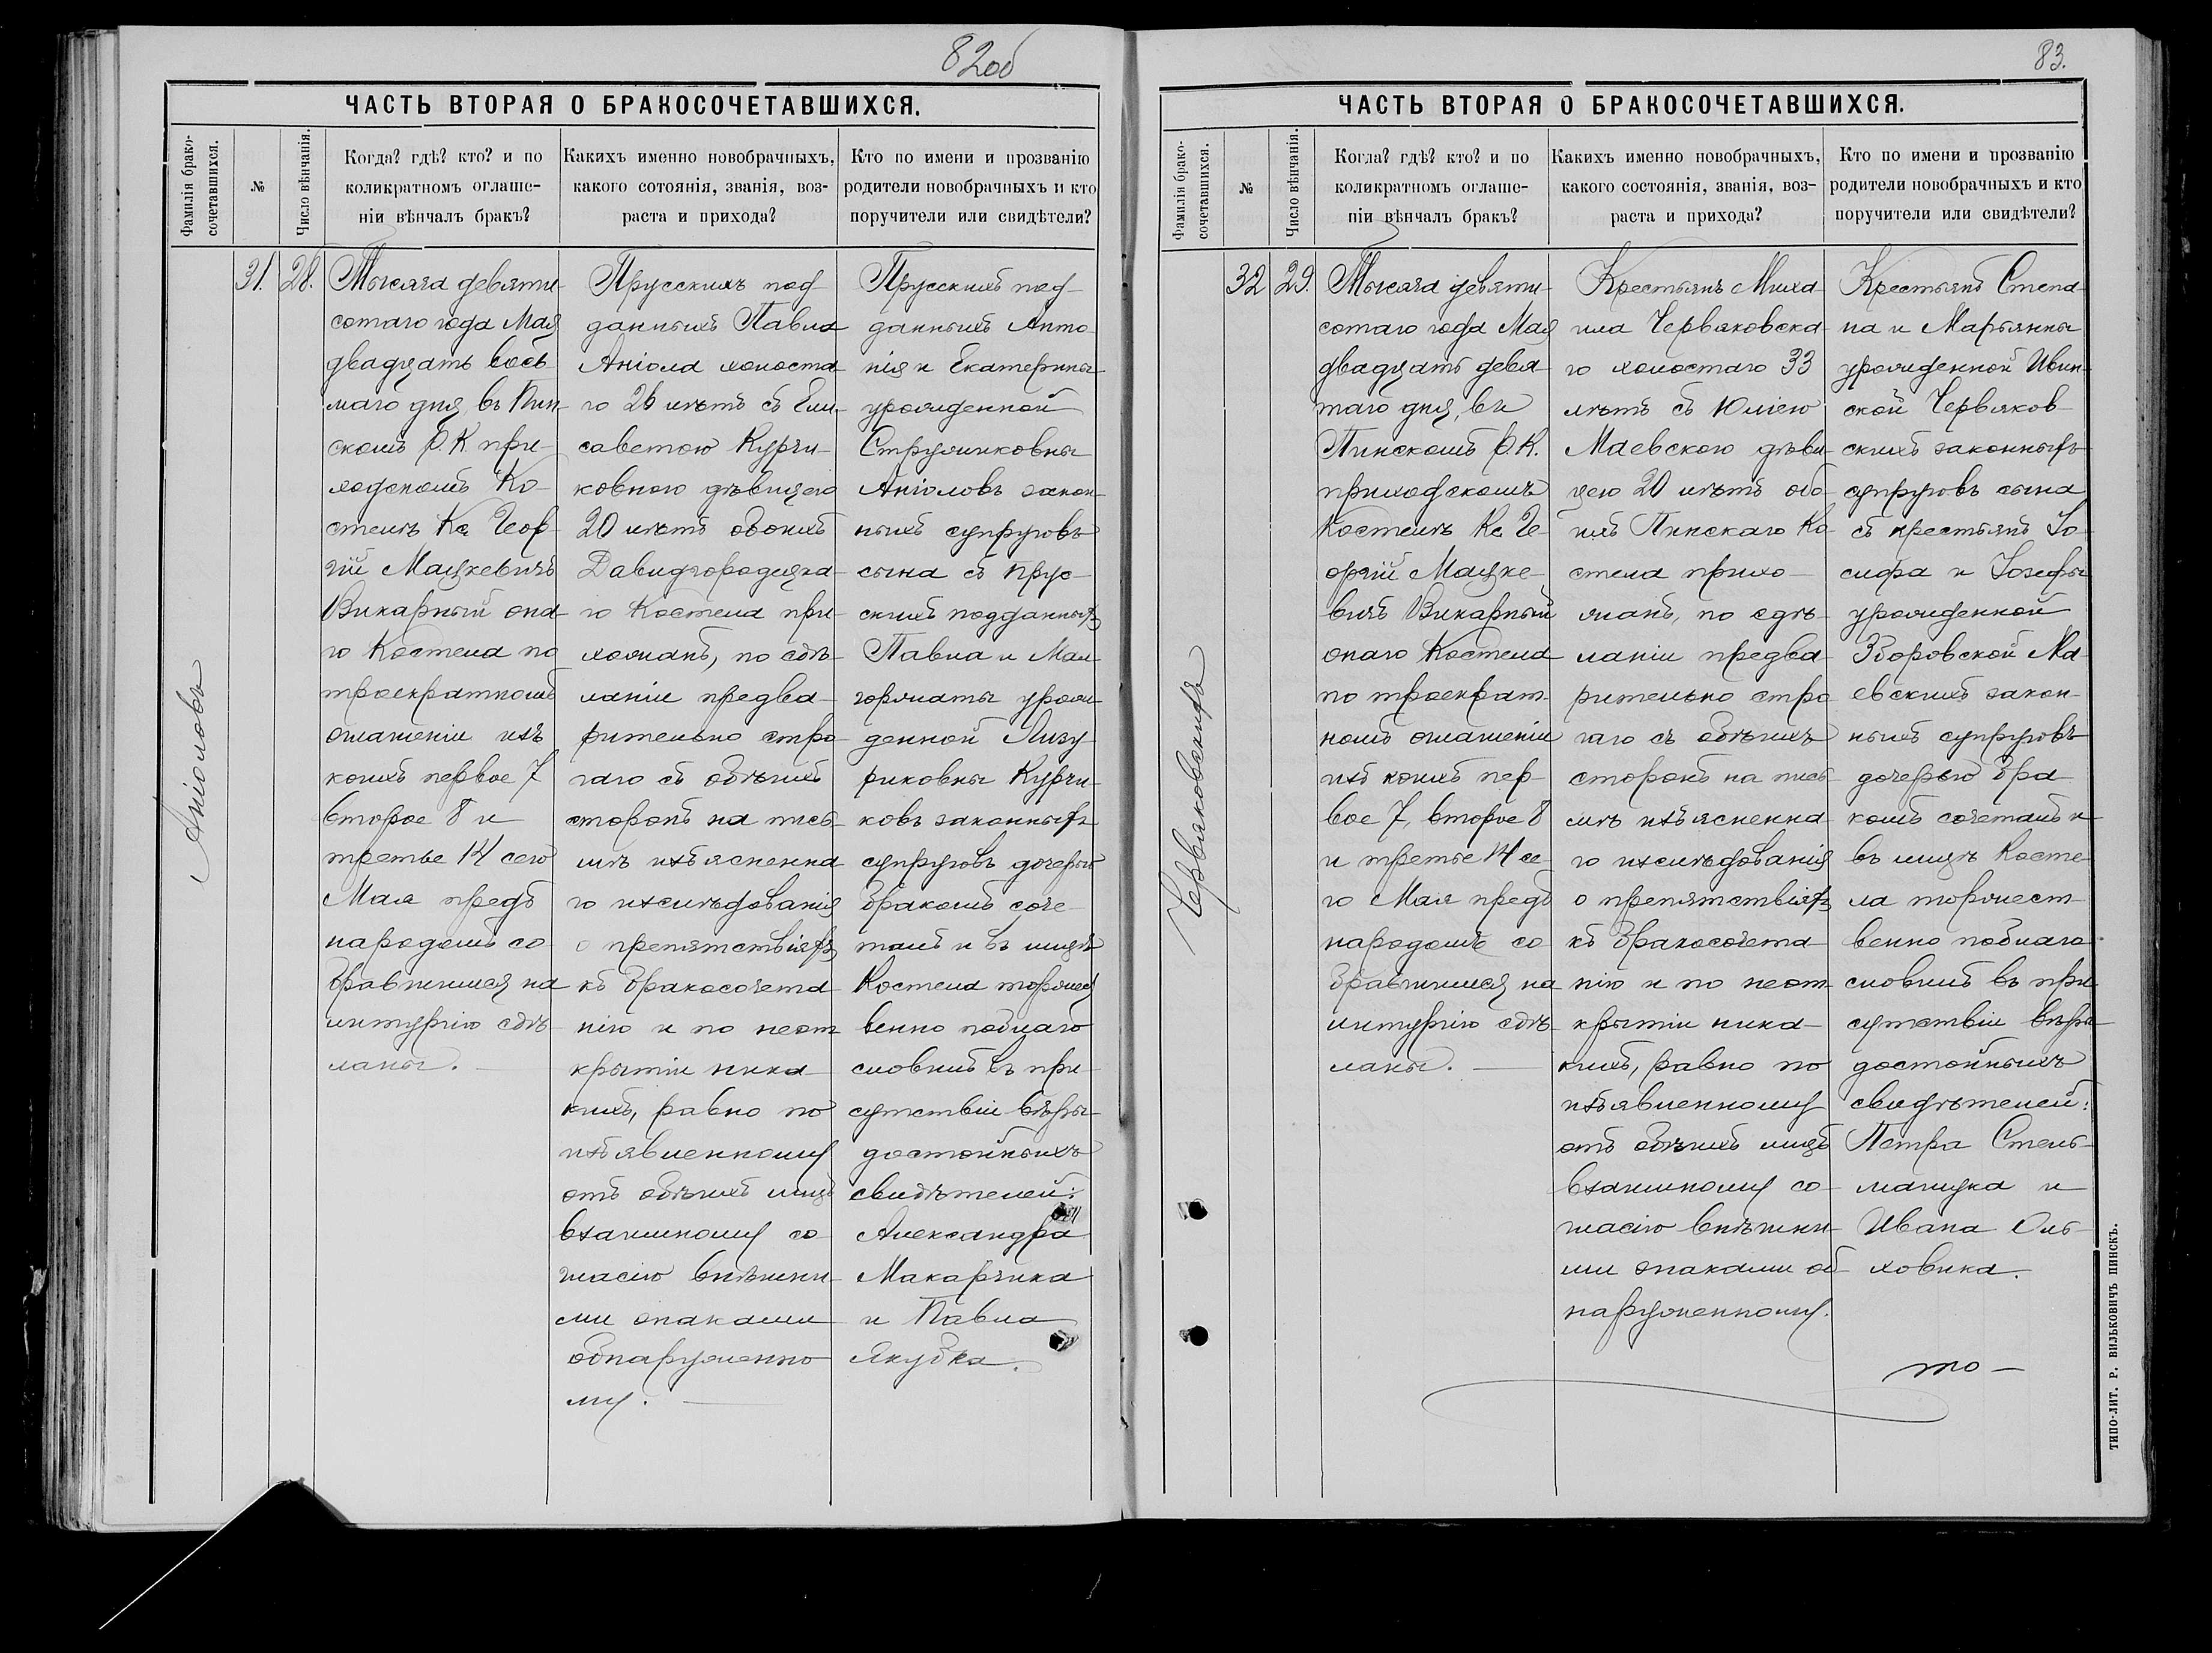 82об
ЧАСТЬ ВТОРАЯ О БРАКОСОЧЕТАВШИХСЯ.
Фамилія брако-
сочетавшихся.
№
Число вѣнчанія.
Когда? гдѣ? кто? и по
коликратномъ оглаше-
ніи вѣнчалъ бракъ?
Какихъ именно новобрачныхъ,
какого сотоянія, званія, воз-
раста и прихода?
Кто по имени и прозванію
родители новобрачныхъ и кто
поручители или свидѣтели?
Аніоловъ
31.
28.
Тысяча девяти-
сотаго года Мая
двадцать вось-
маго дня въ Пин-
скомъ Р.К при-
ходскомъ Ко-
стелѣ Кс. Геор-
гій Мацкевичъ
Викарный она-
го Костела по
троекратномъ
оглашеніи изъ
коихъ первое 7
второе 8 и
третье 14 сего
Мая предъ
народомъ со-
бравшимся на
литургію сдѣ-
ланы.
Прусскихъ под-
данныхъ Павла
Аніола холоста-
го 26 лѣтъ съ Ели-
саветою Курчи-
ковною дѣвицею
20 лѣтъ обоихъ
Давидгородецка-
го Костела при-
хожанъ, по сдѣ-
ланіи предва-
рительно стро-
гаго съ обѣихъ
сторонъ на пись-
мѣ изъясненна-
го изслѣдованія
о препятствіяхъ
къ бракосочета-
нію и по неот-
крытіи ника-
кихъ, равно по
изъявленному
отъ обѣихъ лицъ
взаимному со-
гласію внѣшни-
ми знаками
обнаруженно-
му.
Прусскихъ под-
данныхъ Анто-
нія и Екатерины
урожденной
Струмиковны
Аніоловъ закон-
ныхъ супруговъ
сына съ прус-
скихъ подданныхъ
Павла и Мал-
горжаты урож-
денной Лизу-
риковны Курчи-
ковъ законныхъ
супруговъ дочерью
бракомъ соче-
талъ и въ лицѣ
Костела торжест-
венно поблаго-
словилъ въ при-
сутствіи вѣры-
достойныхъ
свидѣтелей:
Александра
Макарчика
и Павла
Якубка.
83.
ЧАСТЬ ВТОРАЯ О БРАКОСОЧЕТАВШИХСЯ.
Фамилія брако-
сочетавшихся.
№
Число вѣнчанія.
Когда? гдѣ? кто? и по
коликратномъ оглаше-
ніи вѣнчалъ бракъ?
Какихъ именно новобрачныхъ,
какого состоянія, званія, воз-
раста и прихода?
Кто по имени и прозванію
родители новобрачныхъ и кто
поручители или свидѣтели?
Червяковскихъ
32
29.
Тысяча девяти-
сотаго года Мая
двадцать девя-
таго дня, въ
Пинскомъ Р.К.
приходскомъ
Костелѣ Кс. Ге-
оргій Мацке-
вичъ Викарный
онаго Костела
по троекрат-
номъ оглашеніи
изъ коихъ пер-
вое 7, второе 8
и третье 14 се-
го Мая предъ
народомъ со-
бравшимся на
литургію сдѣ-
ланы.
Крестьянъ Миха-
ила Червяковска-
го холостаго 33
лѣтъ съ Юліею
Маевскою дѣви-
цею 20 лѣтъ обо-
ихъ Пинскаго Ко-
стела прихо-
жанъ, по сдѣ-
ланіи предва-
рительно стро-
гаго съ обѣихъ
сторонъ на пись-
мѣ изъясненна-
го изслѣдованія
о препятствіяхъ
къ бракосочета-
нію и по неот-
крытіи ника-
кихъ, равно по
изъявленному
отъ обѣихъ лицъ
взаимному со-
гласію внѣшни-
ми знаками об-
наруженному.
Крестьянъ Степа-
на и Марьянны
урожденной Ивин-
ской Червяков-
скихъ законныхъ
супруговъ сына
съ крестьянъ Іо-
сифа и Іозефы
урожденной
Зборовской Ма-
евскихъ закон-
ныхъ супруговъ
дочерью бра-
комъ сочеталъ и
въ лицѣ Косте-
ла торжест-
венно поблаго-
словилъ въ при-
сутствіи вѣры-
достойныхъ
свидѣтелей:
Петра Стель-
мащука и
Ивана Оль-
ховика.
то —
ТИПО-ЛИТ. Р. ВИЛЬКОВИЧЪ ПИНСКЪ.